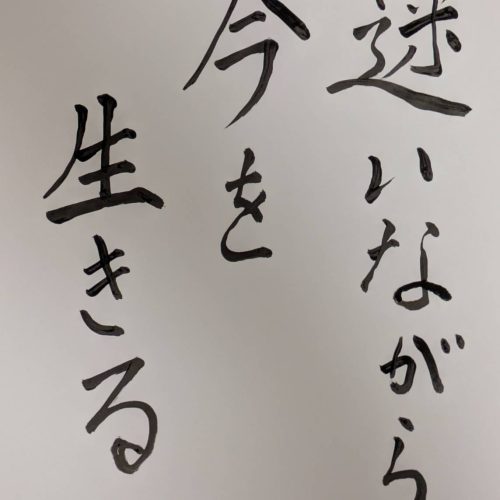 迷いながら
今を
生きる